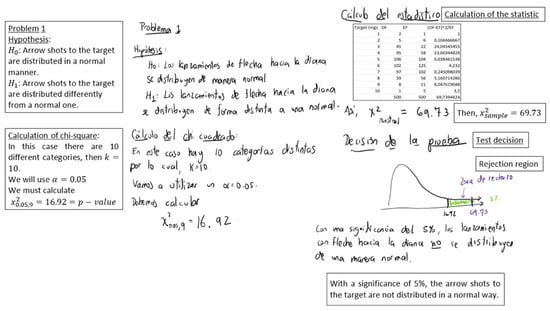 Problem 1
Hypothesis:
H₀: Arrow shots to the target
are distributed in a normal
manner.
H₁: Arrow shots to the target
are distributed differently
from a normal one.
Calculation of chi-square:
In this case there are 10
different categories, then k =
10.
We will use α = 0.05
We must calculate
x²₀.₀₅,₉ = 16.92 = p − value
Problema 1
Hipótesis:
H₀: Los lanzamientos de flecha hacia la diana
se distribuyen de manera normal
H₁: Los lanzamientos de flecha hacia la diana
se distribuyen de forma distinta a una normal.
Cálculo del chi cuadrado:
En este caso hay 10 categorías distintas
por lo cual, k=10
Vamos a utilizar un α=0.05.
Debemos calcular
x²₀.₀₅,₉ = 16.92
Cálculo del estadístico
Calculation of the statistic
Target rings OF EF (OF-EF)^2/EF
1 2 1 1
2 5 6 0,166666667
3 45 22 24,04545455
4 95 58 23,60344828
5 106 104 0,038461538
6 102 125 4,232
7 97 102 0,245098039
8 39 56 5,160714286
9 8 21 8,047619048
10 1 5 3,2
500 500 69,7394624
Así, x² muestral = 69.73
Then, x²sample = 69.73
Decisión de la prueba
Test decision
Rejection region
Zona de rechazo
5%
16.92
69.73
Con una significancia del 5%, los lanzamientos
con flecha hacia la diana no se distribuyen
de una manera normal.
With a significance of 5%, the arrow shots to
the target are not distributed in a normal way.